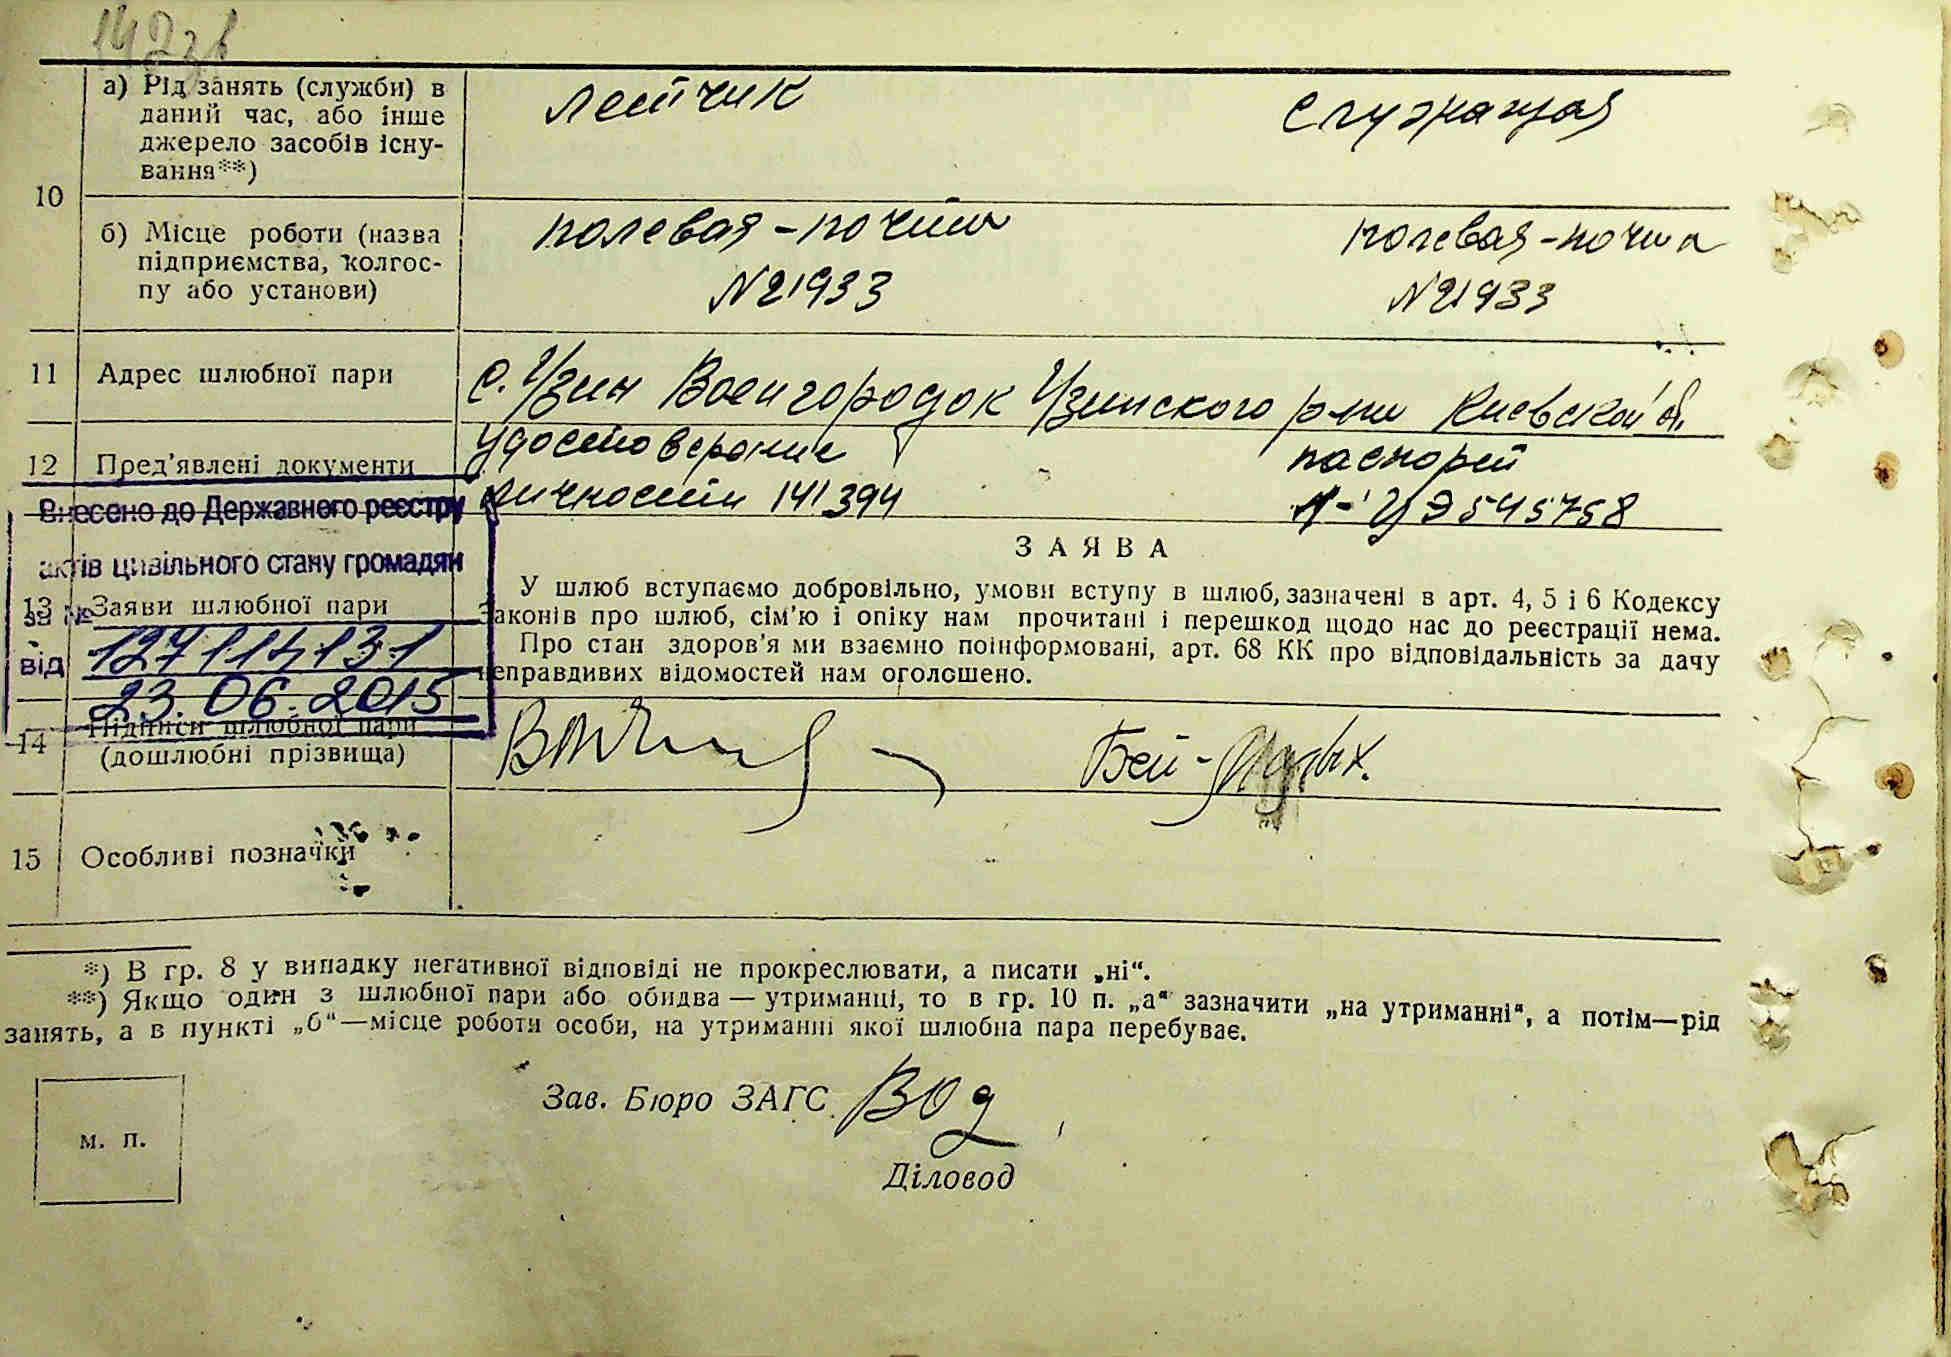 142зв
10
а) Рід занять (служби) в
даний час, або інше
джерело засобів існу-
вання**)
летчик
служащая
б) Місце роботи (назва
підприємства, колгос-
пу або установи)
полевая-почта
полевая-почта
N21933
N21933
11
Адрес шлюбної пари
с. Узин Военгородок Узинского р-на Киевской об.
12
Пред'явлені документи
удостоверение
паспорт
личности 141394
545758
Внесено до Державного реєстру
актів цивільного стану громадян
за №
127114131
від
23.06.2015
13
Заяви шлюбної пари
ЗАЯВА
У шлюб вступаємо добровільно, умови вступу в шлюб, зазначені в арт. 4, 5 і 6 Кодексу
Законів про шлюб, сім'ю і опіку нам прочитані і перешкод щодо нас до реєстрації нема.
Про стан здоров'я ми взаємно поінформовані, арт. 68 КК про відповідальність за дачу
неправдивих відомостей нам оголошено.
14
Підписи шлюбної пари
(дошлюбні прізвища)
Бей-
15
Особливі позначки
*) В гр. 8 у випадку негативної відповіді не прокреслювати, а писати „ні“.
**) Якщо один з шлюбної пари або обидва — утриманці, то в гр. 10 п. „а“ зазначити „на утриманні“, а потім—рід
занять, а в пункті „б“—місце роботи особи, на утриманні якої шлюбна пара перебуває.
м. п.
Зав. Бюро ЗАГС
Діловод